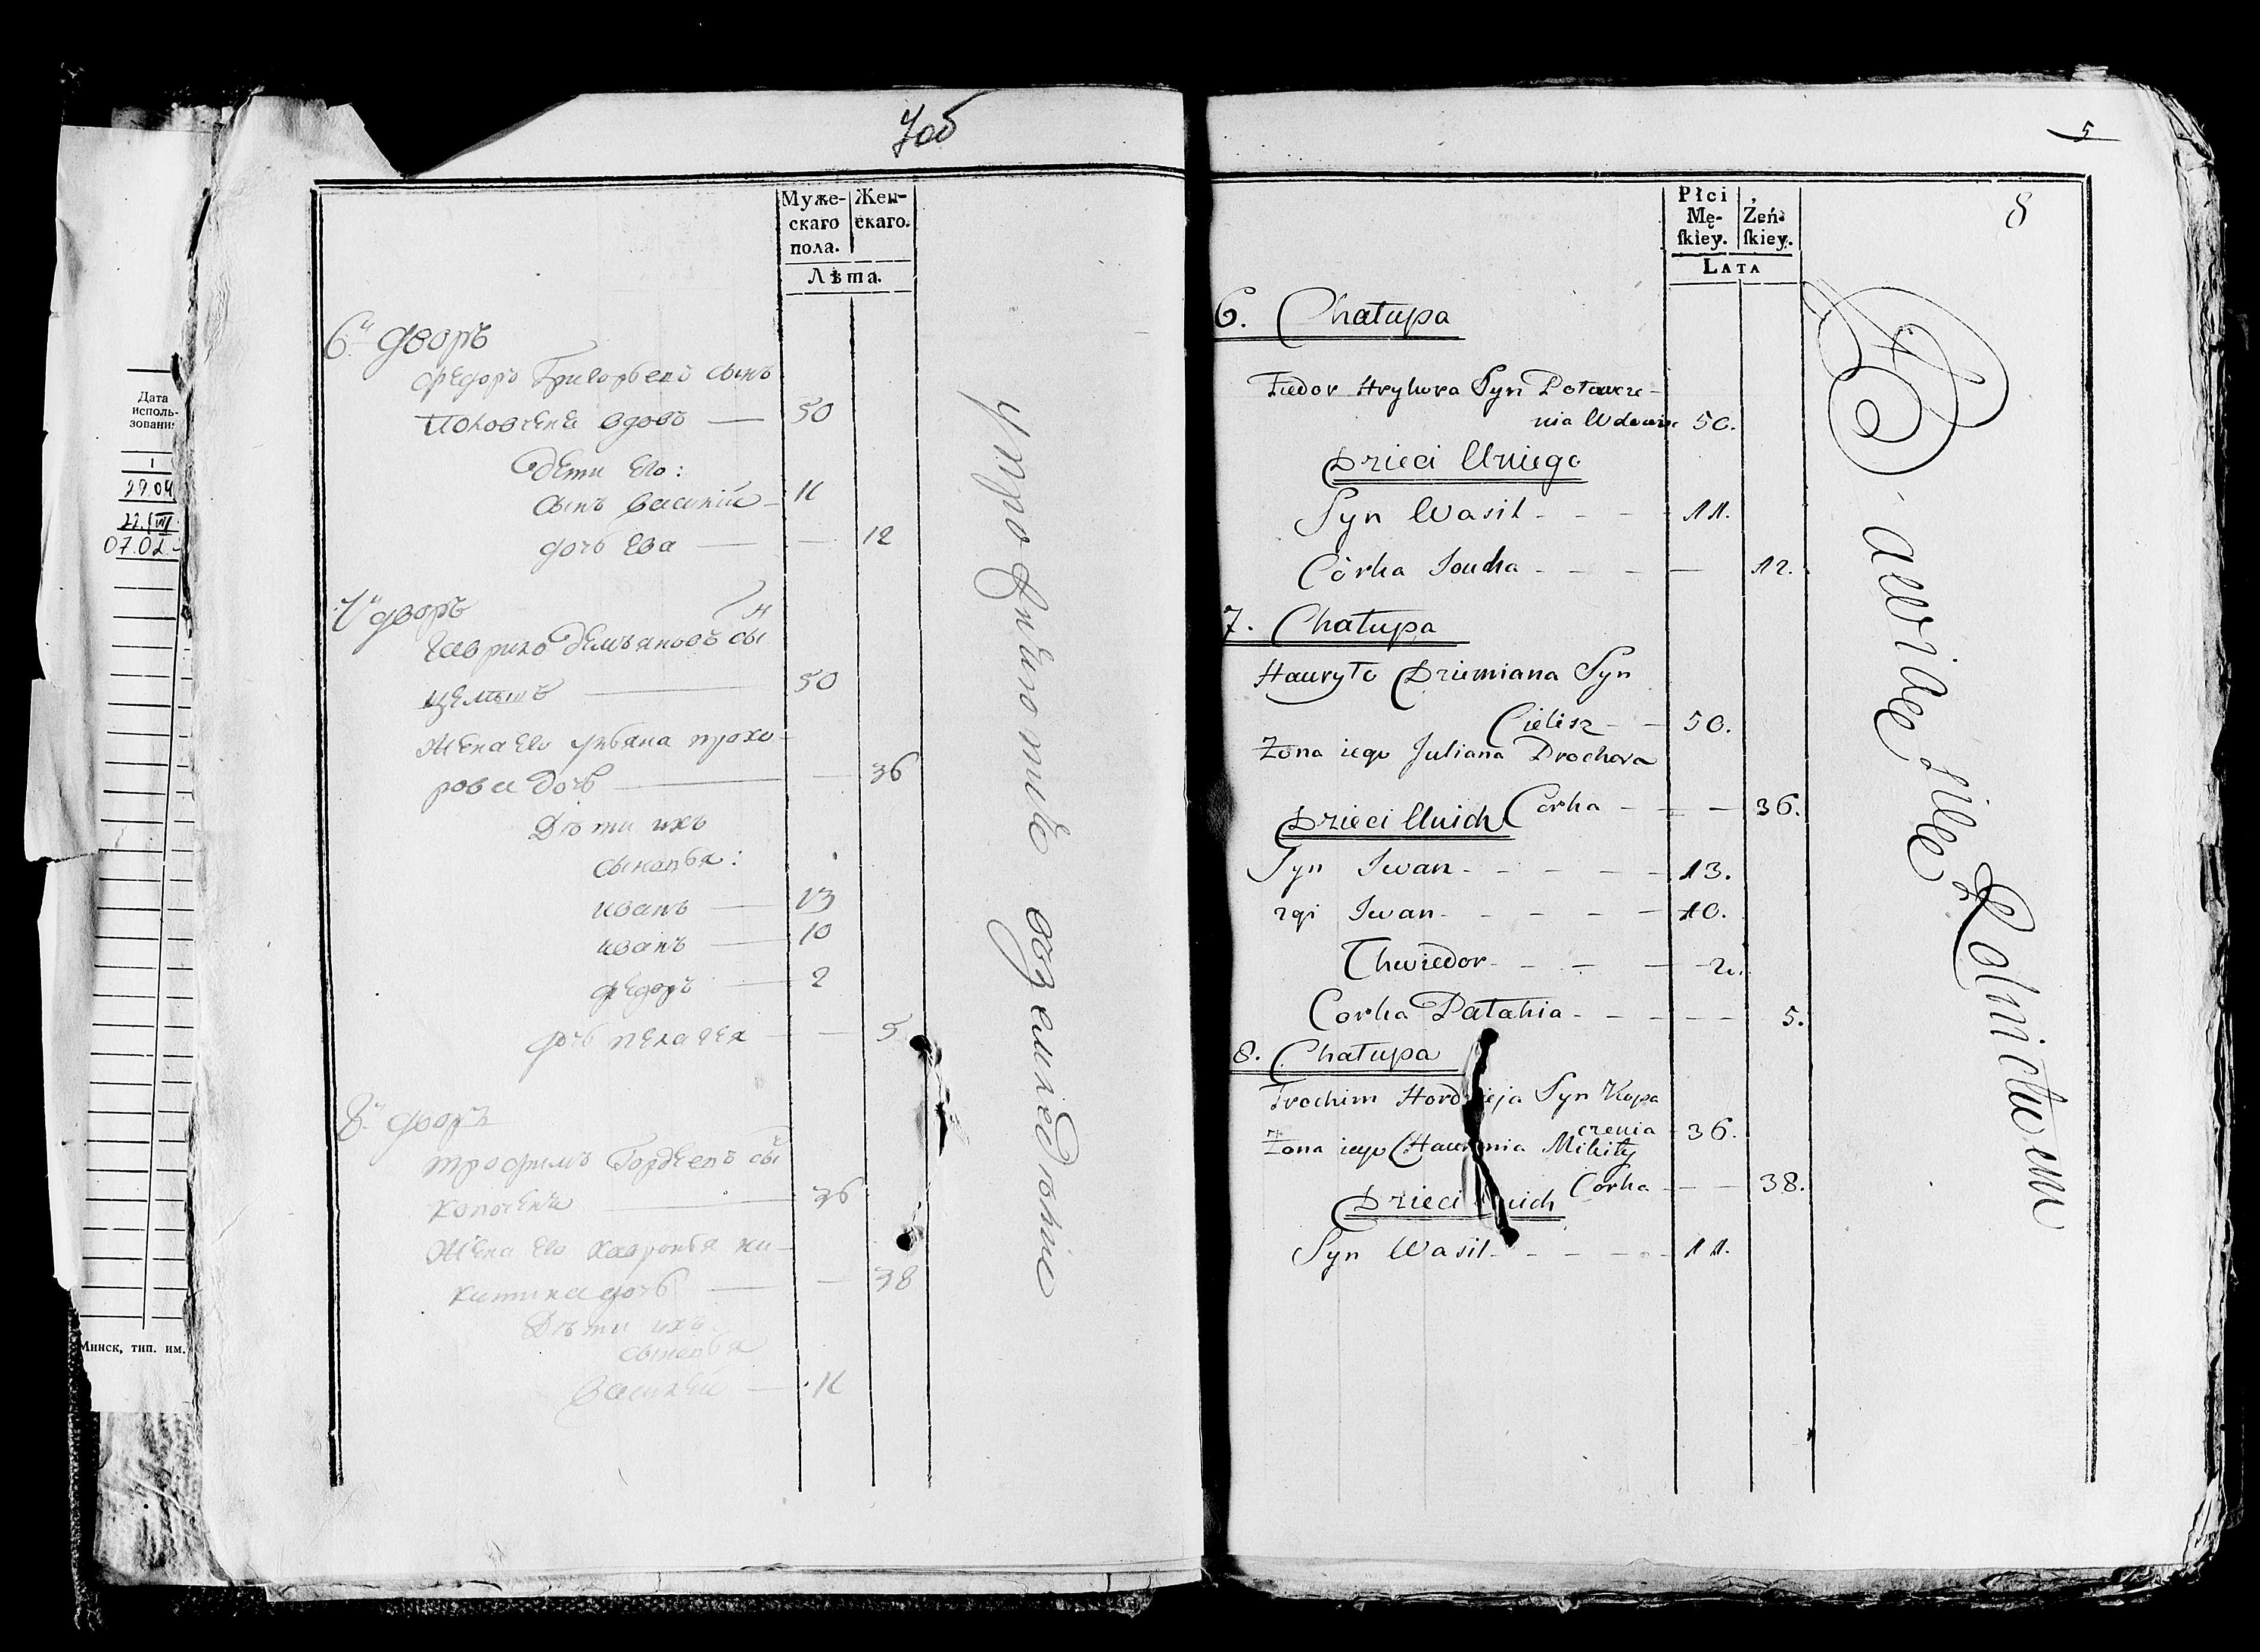 Дата
исполь-
зования
1
22.
07.02.
Минск, тип. им.
7об
Муже-
скаго
пола.
Жен-
скаго.
Лѣта.
6й дворъ
Федоръ Григорьевъ сынъ
вдовъ — 50
дети его:
сынъ Василий — 11
дочь Ева — — 12
7й дворъ
Гаврило Демъяновъ сынъ
50
Жена его Ульяна прохо-
рова дочь — — 36
Дѣти ихъ
сыновья:
иванъ — 13
иванъ — 10
федоръ — 2
дочь пелагея — — 5
8й дворъ
трофимъ Гордеевъ сынъ
Копоченя — 36
Жена его хавронья ни-
китина дочь — — 38
Дѣти ихъ
сыновья
Василей — 11
упражняются въ земледѣлие
5
8
Płci
Mę-
skiey.
Żeń-
skiey.
LATA
6. Chałupa
Fiedor Hryhora Syn Potowcze-
nia Wdowiec 50.
Dzieci Uniego
Syn Wasil - - - - 11.
Córka Jewdka - - - - — 12.
7. Chałupa
Hauryło Dziemiana Syn
Cielisz - - 50.
Żona iego Juliana Prochora
Corka - - — 36.
Dzieci Unich
Syn Iwan - - - - - 13.
2gi Iwan - - - - - 10.
Chwiedor - - - - 2.
Corka Pałahia - - - - - - 5.
8. Chałupa
Trochim Hordzieja Syn Kopa
czenia 36.
Żona iego Hauronia Mikity
Corka - - — 38.
Dzieci Unich
Syn Wasil - - - - - 11.
Bawiące się Rolnictwem